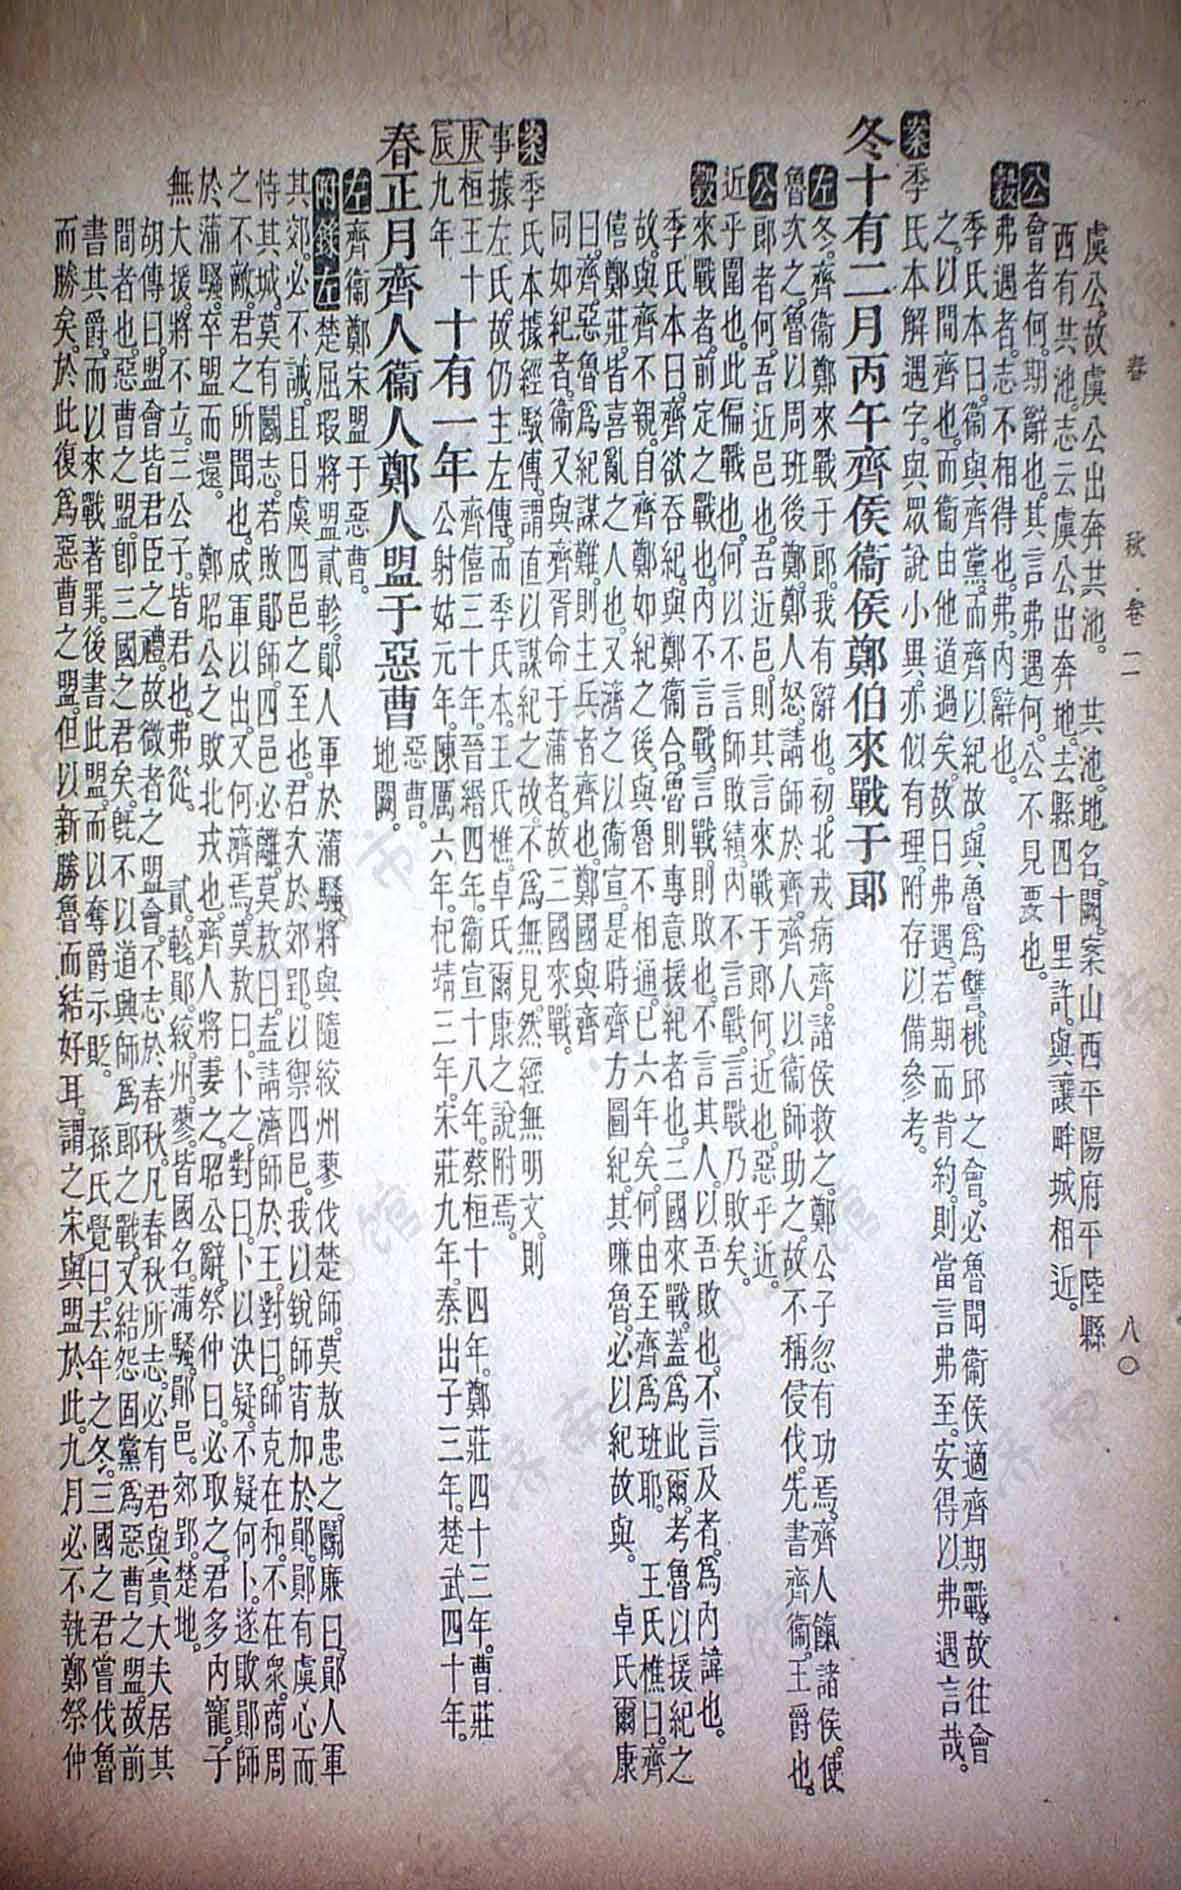 春　秋　卷二　八〇
虞公。故虞公出奔共池。　共池。地名。闕。案山西平陽府平陸縣
西有共池。志云虞公出奔地。去縣四十里許。與讓畔城相近。
公會者何。期辭也。其言弗遇何。公不見要也。
穀弗遇者。志不相得也。弗。內辭也。
季氏本曰。衞與齊黨。而齊以紀故。與魯爲讐。桃邱之會。必魯聞衞侯適齊期戰。故往會
之。以間齊也。而衞由他道過矣。故曰弗遇。若期而背約。則當言弗至。安得以弗遇言哉。
案季氏本解遇字。與眾說小異。亦似有理。附存以備參考。
冬十有二月丙午齊侯衞侯鄭伯來戰于郎
左冬。齊衞鄭來戰于郎。我有辭也。初。北戎病齊。諸侯救之。鄭公子忽有功焉。齊人餼諸侯。使
魯次之。魯以周班後鄭。鄭人怒。請師於齊。齊人以衞師助之。故不稱侵伐。先書齊衞。王爵也。
公郎者何。吾近邑也。吾近邑。則其言來戰于郎何。近也。惡乎近。
近乎圍也。此偏戰也。何以不言師敗績。內不言戰。言戰乃敗矣。
穀來戰者。前定之戰也。內不言戰。言戰。則敗也。不言其人。以吾敗也。不言及者。爲內諱也。
季氏本曰。齊欲吞紀。與鄭衞合。魯則專意援紀者也。三國來戰。蓋爲此爾。考魯以援紀之
故。與齊不親。自齊鄭如紀之後。與魯不相通。已六年矣。何由至齊爲班耶。　王氏樵曰。齊
僖鄭莊。皆喜亂之人也。又濟之以衞宣。是時齊方圖紀。其嗛魯。必以紀故與。　卓氏爾康
曰。齊惡魯爲紀謀難。則主兵者齊也。鄭國與齊
同如紀者。衞又與齊胥命于蒲者。故三國來戰。
案季氏本據經駁傳。謂直以謀紀之故。不爲無見。然經無明文。則
事據左氏。故仍主左傳。而季氏本。王氏樵。卓氏爾康之說附焉。
庚辰桓王十九年　十有一年齊僖三十年。晉緡四年。衞宣十八年。蔡桓十四年。鄭莊四十三年。曹莊
公射姑元年。陳厲六年。杞靖三年。宋莊九年。秦出子三年。楚武四十年。
春正月齊人衞人鄭人盟于惡曹惡曹。地闕。
左齊衞鄭宋盟于惡曹。
附錄左楚屈瑕將盟貳軫。鄖人軍於蒲騷。將與隨絞州蓼伐楚師。莫敖患之。鬭廉曰。鄖人軍
其郊。必不誡。且日虞四邑之至也。君次於郊郢。以禦四邑。我以銳師宵加於鄖。鄖有虞心而
恃其城。莫有鬭志。若敗鄖師。四邑必離。莫敖曰。盍請濟師於王。對曰。師克在和。不在衆。商周
之不敵。君之所聞也。成軍以出。又何濟焉。莫敖曰。卜之。對曰。卜以決疑。不疑何卜。遂敗鄖師
於蒲騷。卒盟而還。　鄭昭公之敗北戎也。齊人將妻之。昭公辭。祭仲曰。必取之。君多內寵。子
無大援。將不立。三公子。皆君也。弗從。　貳。軫。鄖。絞。州。蓼。皆國名。蒲騷。鄖邑。郊郢。楚地。
胡傳曰。盟會皆君臣之禮。故微者之盟會。不志於春秋。凡春秋所志。必有君與貴大夫居其
間者也。惡曹之盟。卽三國之君矣。旣不以道興師。爲郎之戰。又結怨固黨。爲惡曹之盟。故前
書其爵。而以來戰著罪。後書此盟。而以奪爵示貶。　孫氏覺曰。去年之冬。三國之君嘗伐魯
而勝矣。於此復爲惡曹之盟。但以新勝魯而結好耳。謂之宋與盟於此。九月必不執鄭祭仲